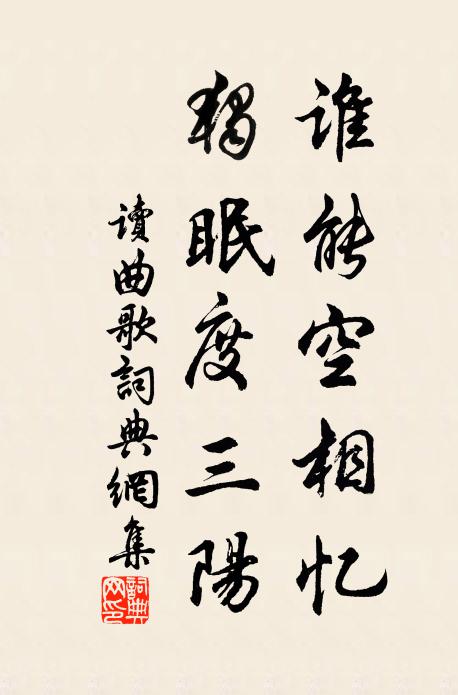 誰能空相忆
獨眠度三陽
讀曲歌詞典網集
詞典網印